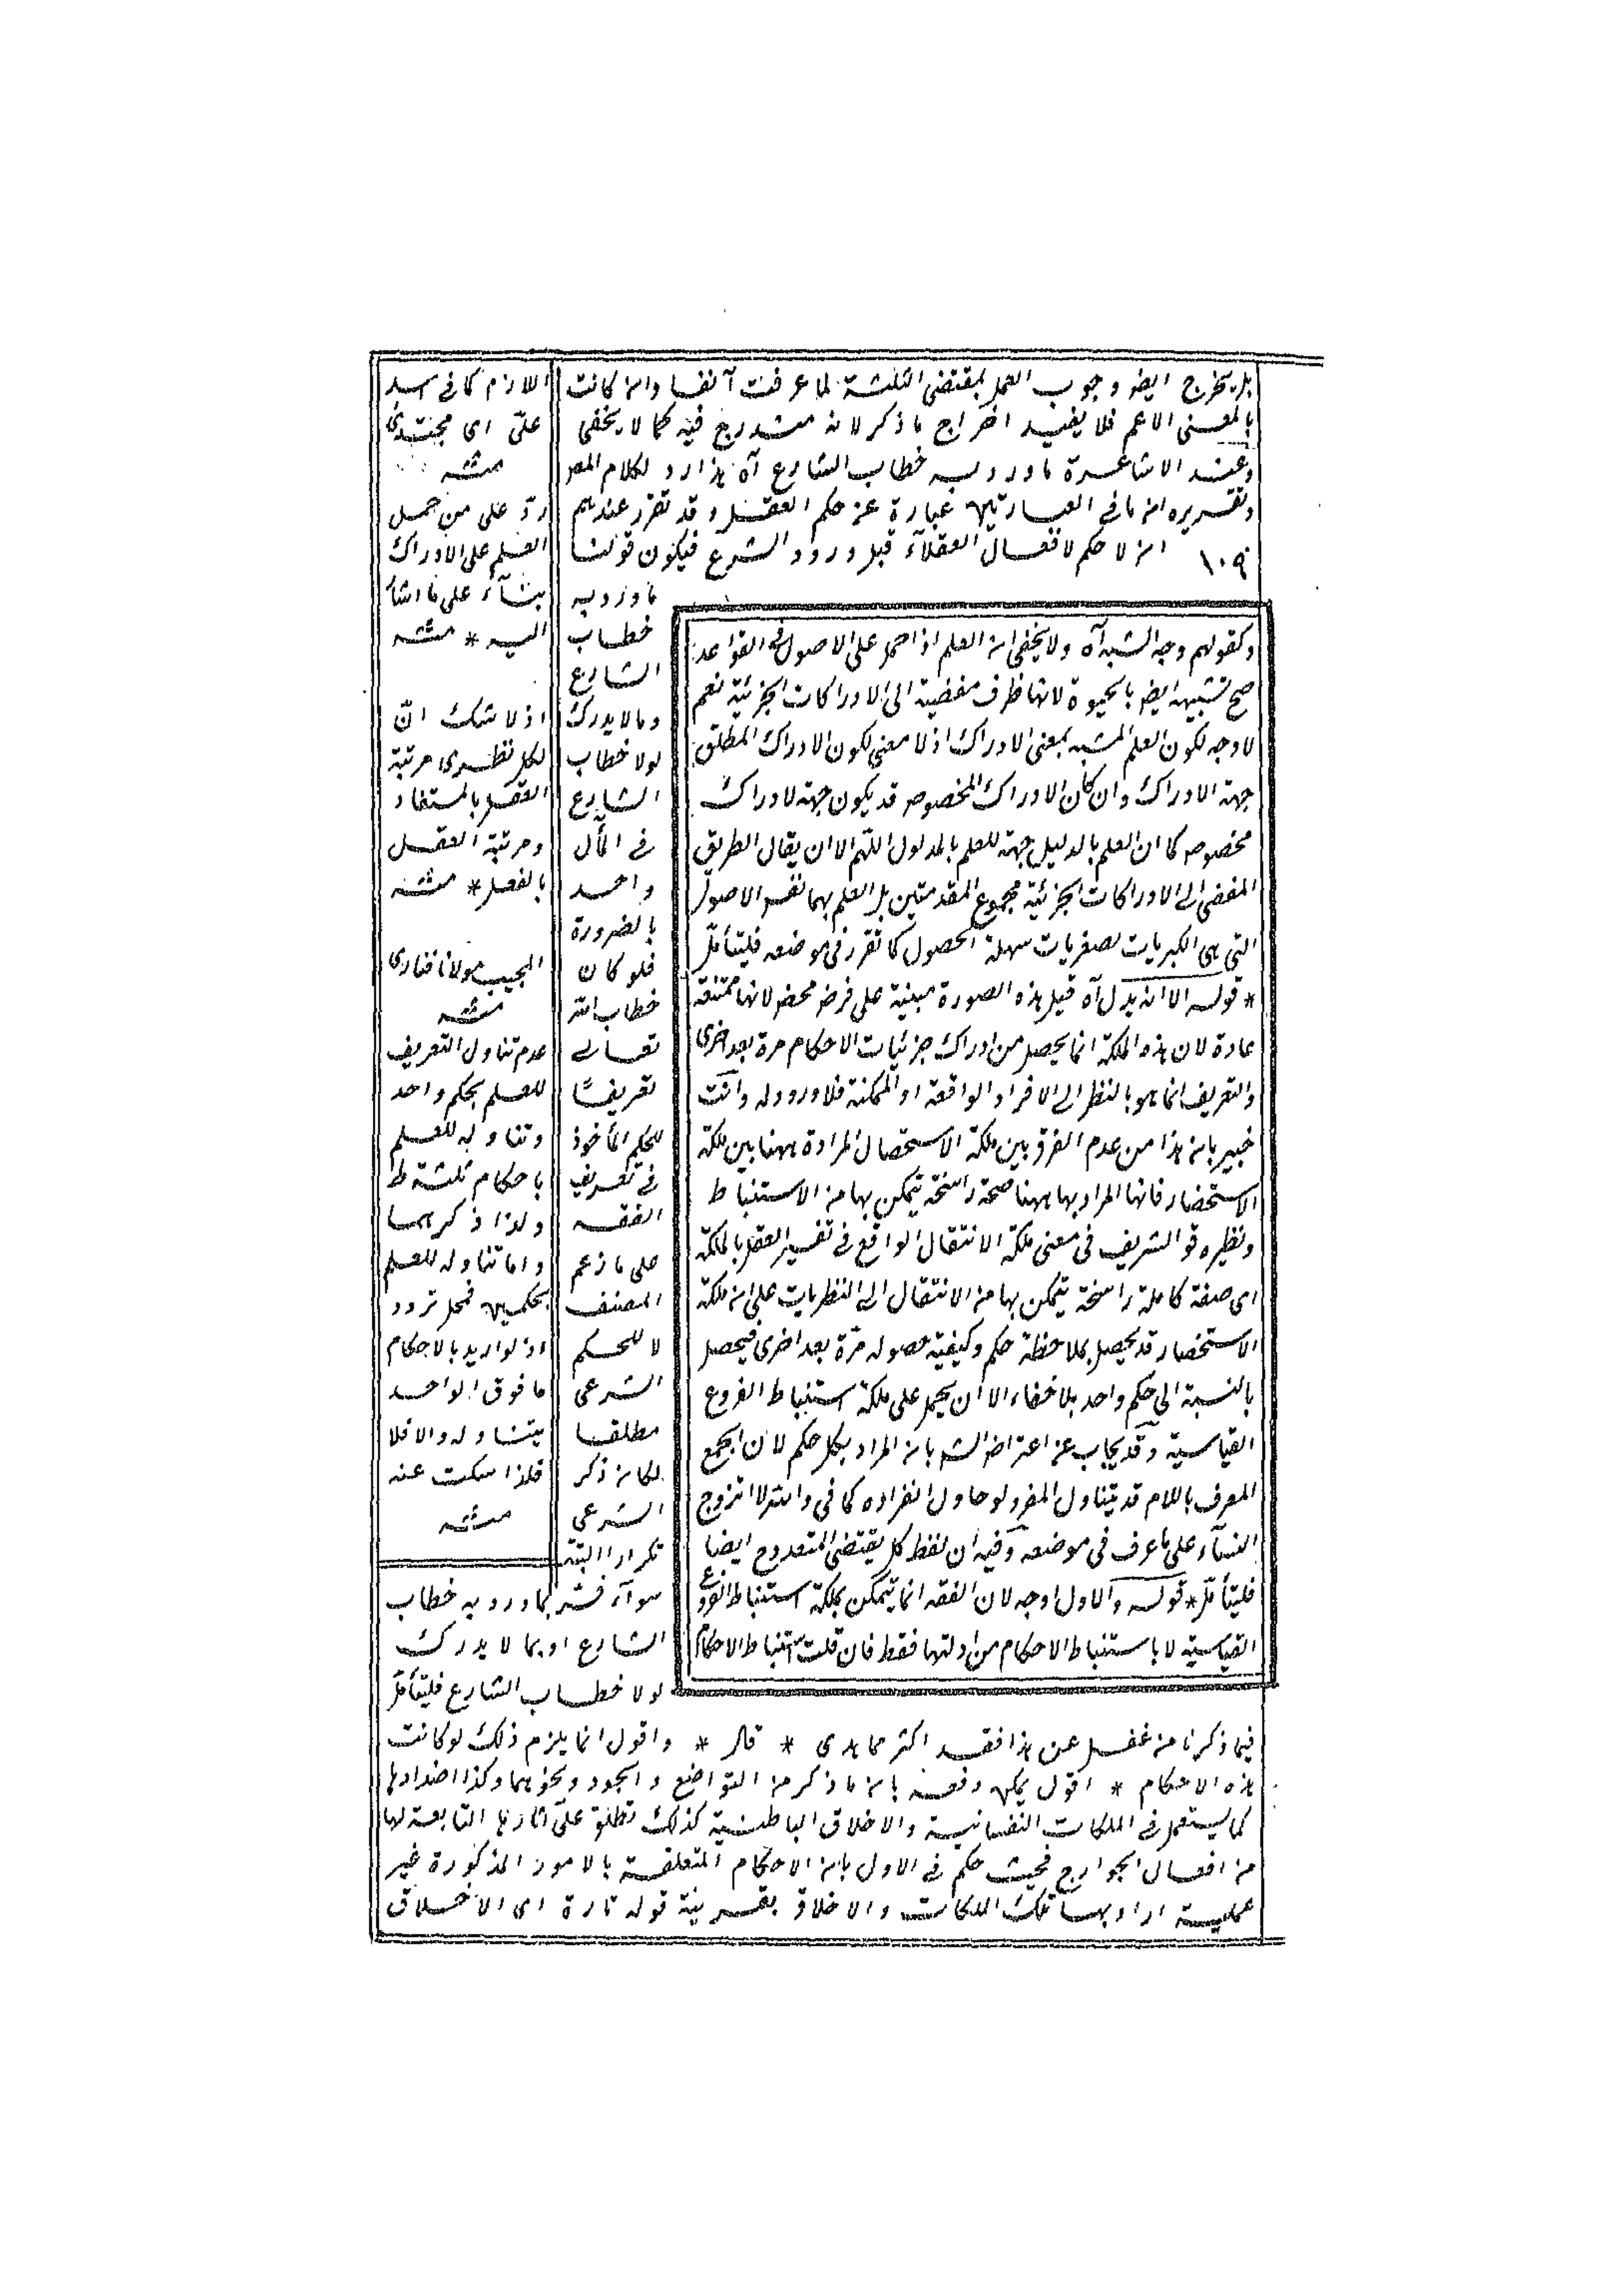 بل يخرج ايضو وجوب العمل بمقتضى الثلثة لما عرفت آنفا وان كانت
بالمعنى الاعم فلا يفيد اخراج ما ذكر لانه مندرج فيه كما لا يخفى
وعند الاشاعرة ما ورد به خطاب الشارع آه هذا رد لكلام المص
وتقريره ان ما فى العبارتين عبارة عن حكم العقل وقد تقرر عندهم
١٠٩ ان لا حكم لافعال العقلآء قبل ورود الشرع فيكون قولنا
ما ورد به
خطاب
الشارع
وما لا يدرك
لولا خطاب
الشارع
فى المأل
واحد
بالضرورة
فلو كان
خطاب الله
تعالى
تعريفًا
للحكم المأخوذ
فى تعريف
الفقه
على ما زعم
المصنف
لا للحكم
الشرعى
مطلقا
لكان ذكر
الشرعى
تكرارا البتة
سوآء فسر بما ورد به خطاب
الشارع او بما لا يدرك
لولا خطاب الشارع فليتأمل
فيما ذكرنا من غفل عن هذا فقد اكثر مما هدى * قال * واقول انما يلزم ذلك لو كانت
هذه الاحكام * اقول يمكن دفعه بان ما ذكر من التواضع والجود ونحوهما وكذا اضدادها
كما يستعمل فى الملكات النفسانية والاخلاق الباطنية كذلك تطلق على آثارها التابعة لها
من افعال الجوارح فحيث حكم فى الاول بان الاحكام المتعلقة بالامور المذكورة غير
عملية اراد بها تلك الملكات والاخلاق بقرينة قوله تارة اى الاخلاق
وكقولهم وجه الشبه آه ولا يخفى ان العلم اذا حمل على الاصول والقواعد
صح تشبيهه ايضو بالحيوة لانها ظرف مفضية الى الادراكات الجزئية نعم
لا وجه لكون العلم المشبه بمعنى الادراك اذ لا معنى لكون الادراك المطلق
جهة الادراك وان كان الادراك المخصوص قد يكون جهة لادراك
مخصوص كما ان العلم بالدليل جهة للعلم بالمدلول اللهم الا ان يقال الطريق
المفضى الى الادراكات الجزئية مجموع المقدمتين بل العلم بهما نفس الاصول
التى هى الكبريات لصغريات سهلة الحصول كما تقرر فى موضعه فليتأمل
* قوله الا انه يدل آه قيل هذه الصورة مبنية على فرض محض لانها ممتنعة
عادة لان هذه الملكة انما يحصل من ادراك جزئيات الاحكام مرة بعد اخرى
والتعريف انما هو بالنظر الى الافراد الواقعة او الممكنة فلا ورود له وانت
خبير بان هذا من عدم الفرق بين ملكة الاستحصال المرادة ههنا بين ملكة
الاستحضار فانها المراد بها ههنا صحة راسخة يتمكن بها من الاستنباط
ونظيره قو الشريف فى معنى ملكة الانتقال الواقع فى تفسير العقل بالملكة
اى صفة كاملة راسخة يتمكن بها من الانتقال الى النظريات على ان ملكة
الاستحضار قد يحصل بملاحظة حكم وكيفية حصوله مرة بعد اخرى فيحصل
بالنسبة الى حكم واحد بلا خفاء الا ان يحمل على ملكة استنباط الفروع
القياسية وقد يجاب عن اعتراض الشم بان المراد بكل حكم لان الجمع
المعرف باللام قد يتناول المفرد لو حاول انفراده كما فى والله لا اتزوج
النسآء على ما عرف فى موضعه وفيه ان لفظ كل يقتضى المتعدد ح ايضا
فليتأمل * قوله والاول اوجه لان الفقه انما يتمكن بملكة استنباط الفروع
القياسية لا باستنباط الاحكام من ادلتها فقط فان قلت استنباط الاحكام
اللازم كما فى اسد
علىّ اى مجتهدى
منه
ردّ على من حمل
العلم على الادراك
بنآء على ما اشا
اليه * منه
اذ لا شك انّ
لكل نظرى مرتبة
العقل بالمستفاد
ومرتبة العقل
بالفعل * منه
المجيب مولانا فنارى
منه
عدم تناول التعريف
للعلم بحكم واحد
وتناوله للعلم
باحكام ثلثة ط
ولذا ذكرهما
واما تناوله للعلم
بحكمين فمحل تردد
اذ لو اريد بالاحكام
ما فوق الواحد
يتناوله والا فلا
فلذا سكت عنه
منه